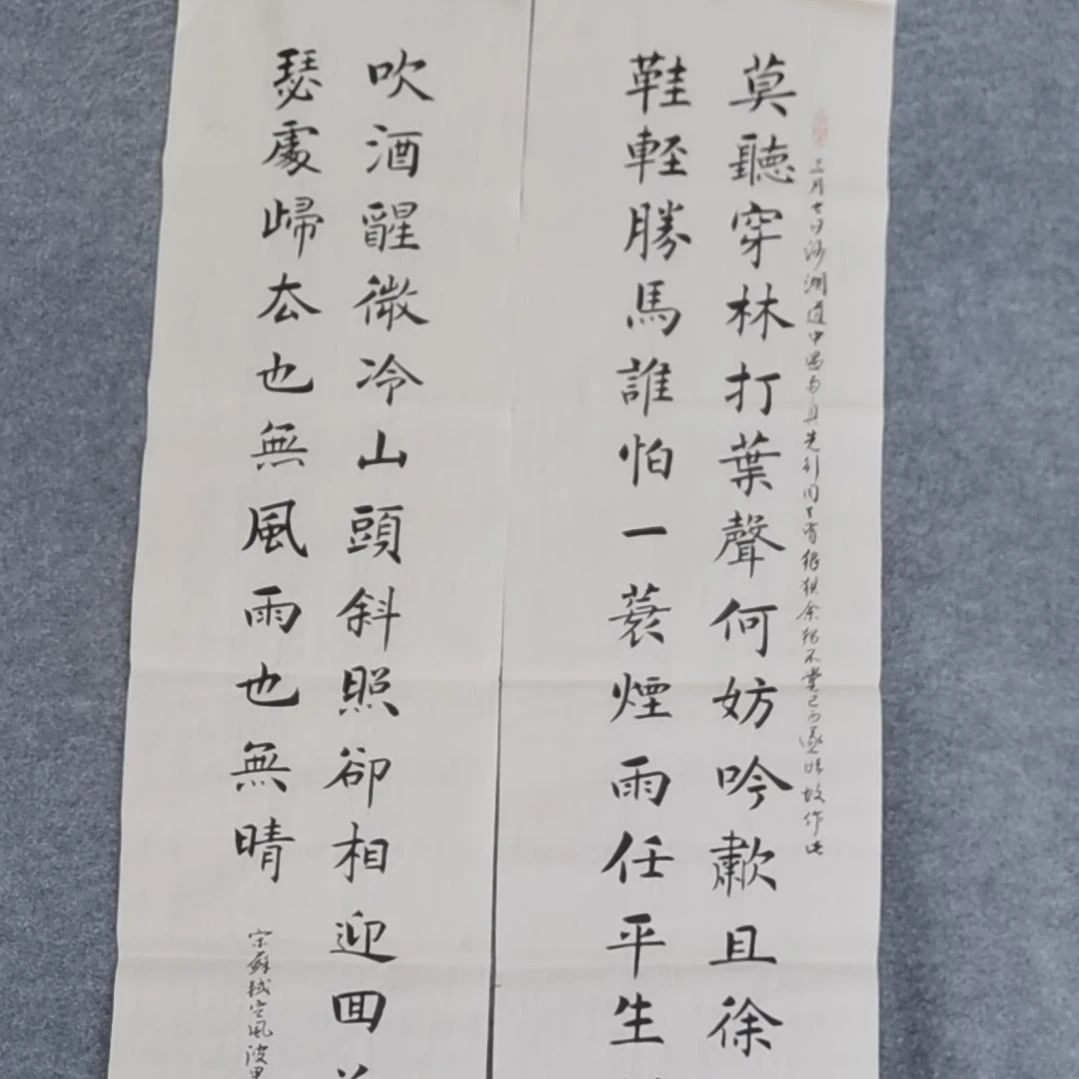 三月七日沙湖道中遇雨具先行同行皆狼狽余獨不覺已而遂晴故作此
莫聽穿林打葉聲何妨吟歗且徐
鞋輕勝馬誰怕一蓑煙雨任平生
吹酒醒微冷山頭斜照卻相迎回
瑟處歸去也無風雨也無晴
宋蘇軾定風波